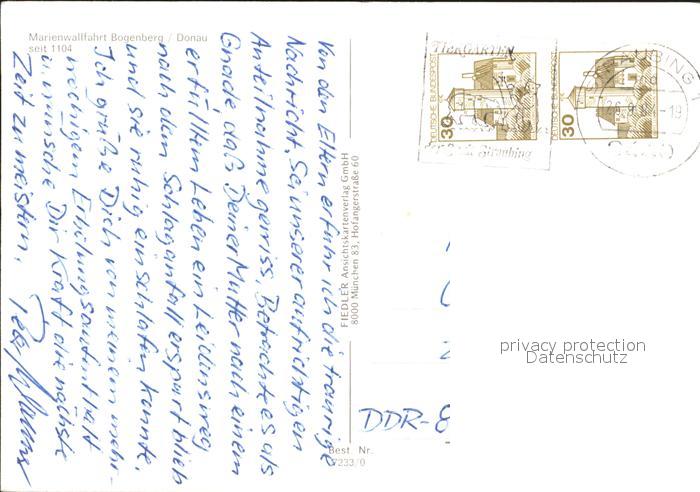 Marienwallfahrt Bogenberg / Donau
seit 1104
Von den Eltern erfuhr ich die traurige
Nachricht. Sei unserer aufrichtigen
Anteilnahme gewiss. Betrachte es als
Gnade daß Deiner Mutter nach einem
erfülltem Leben ein Leidensweg
nach dem Schlaganfall erspart blieb
und sie ruhig einschlafen konnte.
Ich grüße Dich von meinem mehr-
wöchigem Erholungsaufenthalt
u. wünsche Dir Kraft die nächste
Zeit zu meistern.
FIEDLER Ansichtskartenverlag GmbH
8000 München 83, Hofangerstraße 60
TIERGARTEN
Straubing
DEUTSCHE BUNDESPOST
30
DEUTSCHE BUNDESPOST
30
DDR-8
Best. Nr.
7233/0
privacy protection
Datenschutz